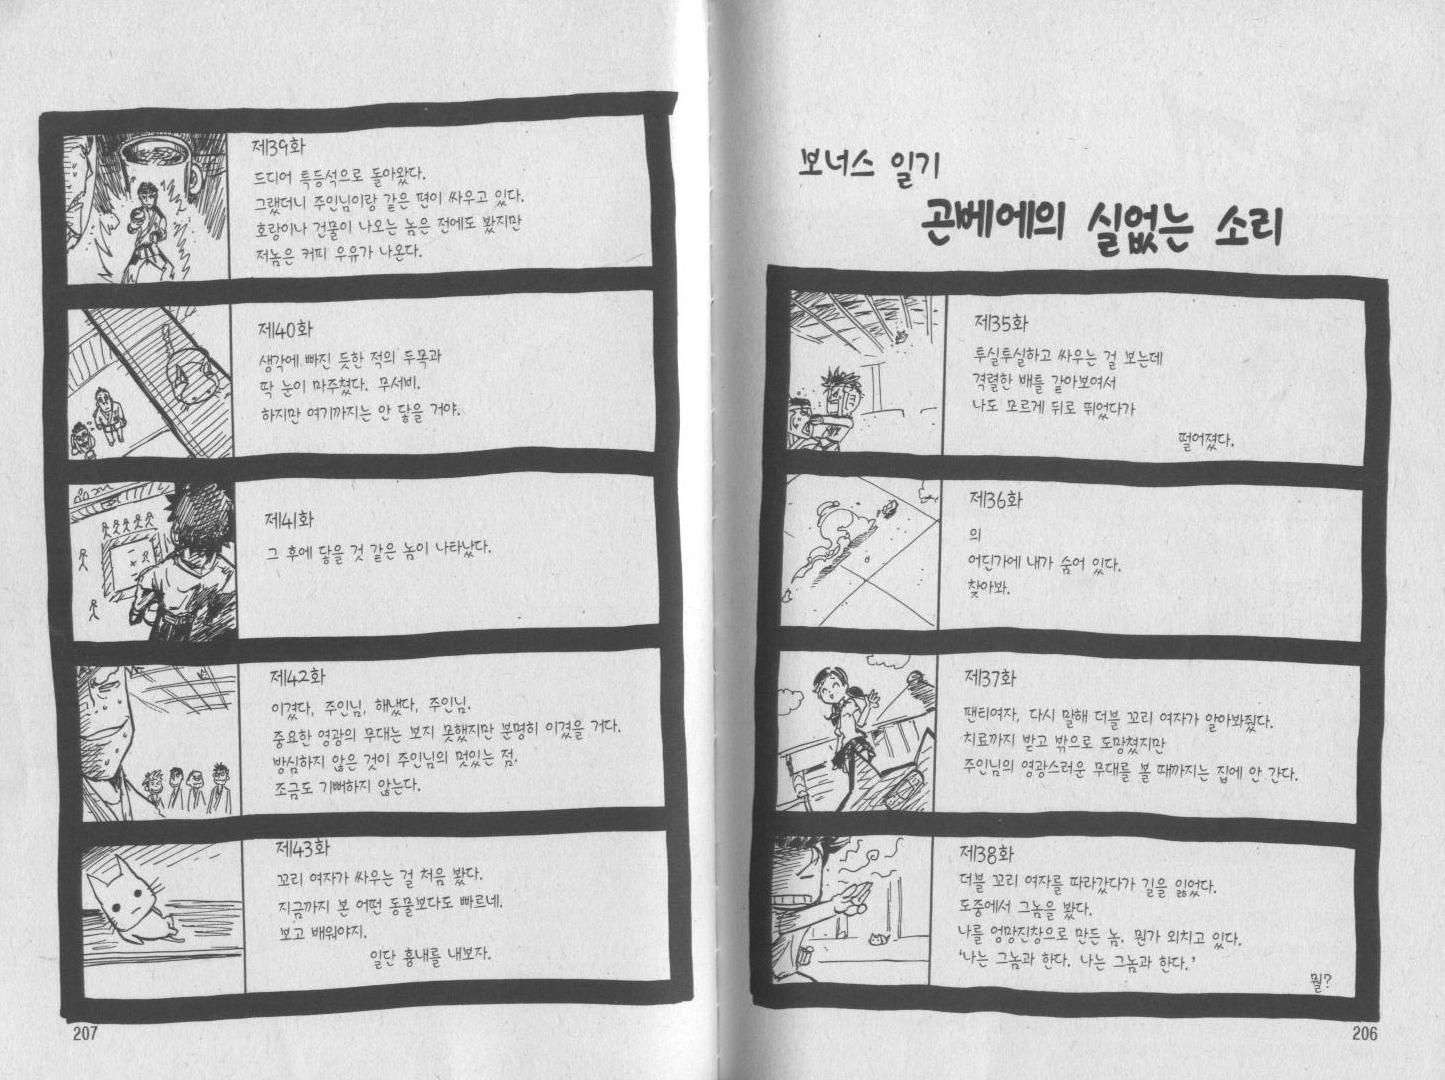 보너스 일기
곤베에의 실없는 소리
제35화
투실투실하고 싸우는 걸 보는데
격렬한 배틀 같아보여서
나도 모르게 뒤로 뛰었다가
떨어졌다.
제36화
의
어딘가에 내가 숨어 있다.
찾아봐.
제37화
팬티여자, 다시 말해 더블 꼬리 여자가 알아봐줬다.
치료까지 받고 밖으로 도망쳤지만
주인님의 영광스러운 무대를 볼 때까지는 집에 안 간다.
제38화
더블 꼬리 여자를 따라갔다가 길을 잃었다.
도중에서 그놈을 봤다.
나를 엉망진창으로 만든 놈. 뭔가 외치고 있다.
'나는 그놈과 한다. 나는 그놈과 한다.'
뭘?
206
제39화
드디어 특등석으로 돌아왔다.
그랬더니 주인님이랑 같은 편이 싸우고 있다.
호랑이나 건물이 나오는 놈은 전에도 봤지만
저놈은 커피 우유가 나온다.
제40화
생각에 빠진 듯한 적의 두목과
딱 눈이 마주쳤다. 무서비.
하지만 여기까지는 안 닿을 거야.
제41화
그 후에 닿을 것 같은 놈이 나타났다.
제42화
이겼다, 주인님, 해냈다, 주인님.
중요한 영광의 무대는 보지 못했지만 분명히 이겼을 거다.
방심하지 않은 것이 주인님의 멋있는 점.
조금도 기뻐하지 않는다.
제43화
꼬리 여자가 싸우는 걸 처음 봤다.
지금까지 본 어떤 동물보다도 빠르네.
보고 배워야지.
일단 흉내를 내보자.
207